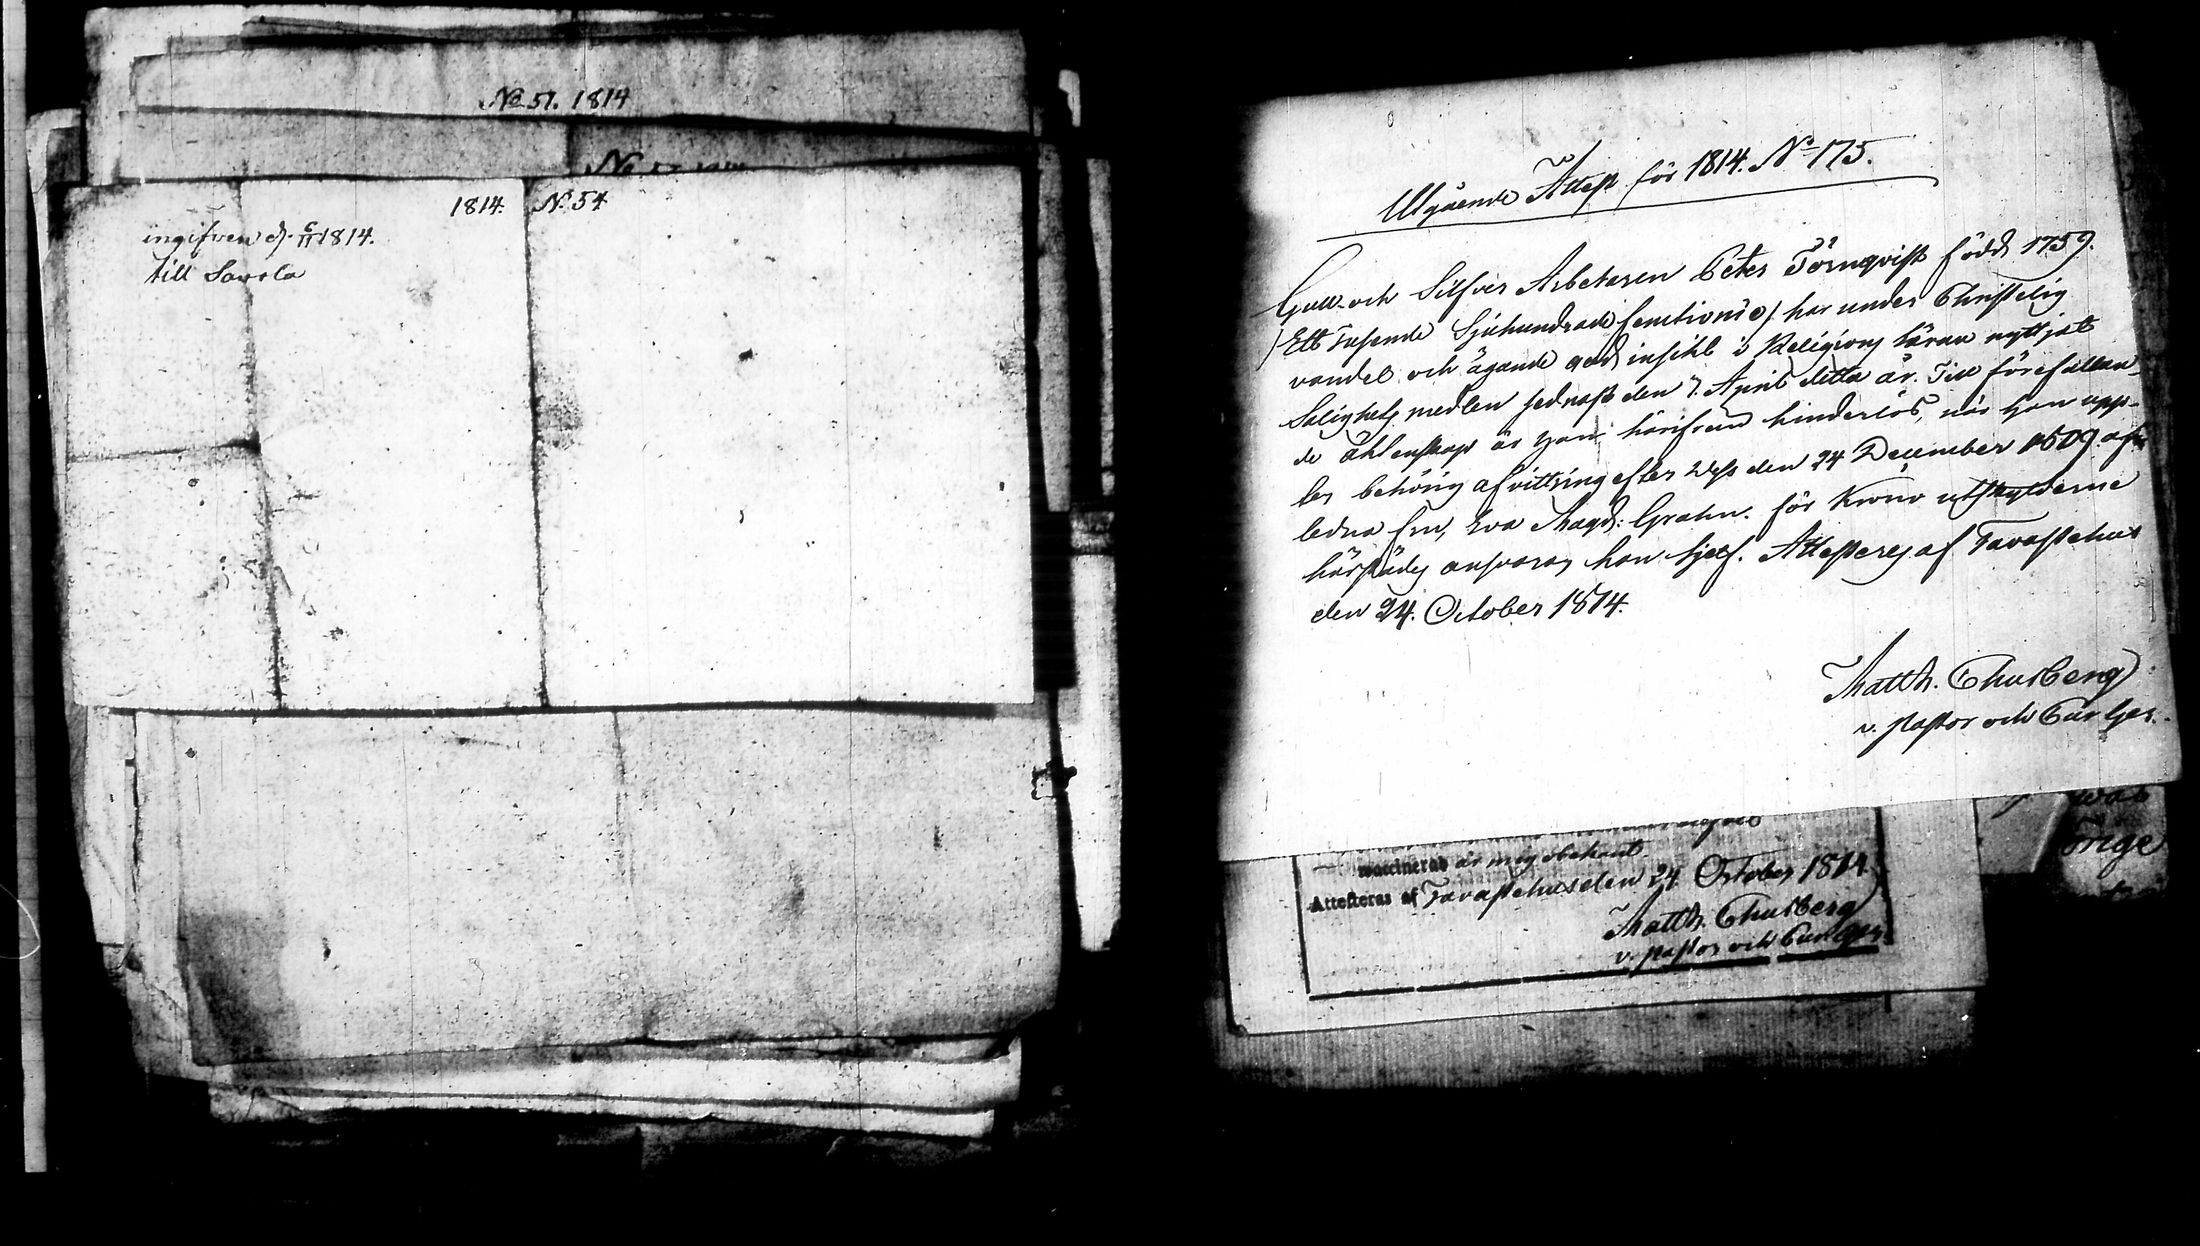 No 51. 1814
1814. N. 54
ingifven d. 6/11 1814.
till Savola
Utgående Attest för 1814. No 175.
Gull- och Silfver Arbetaren Peter Törnqvist född 1759.
/Ett Tusende Sjuhundrade femtionio/ har under Christelig
vandel och ägande god insikt i Religions läran nyttjat
Salighets medlen sednast den 7. April detta år. Till förefallan-
de äktenskap är han härifrån hinderlös, när han upp-
ter behörig afvittring efter dess den 24 December 1809 afl.
ledna fru, Eva Magd: Grahn. för Krono utskylderne
härstädes ansvarar han sjelf. Attesteras af Tavastehus
den 24. October 1814.
Matth. Thusberg
v. pastor och Cur Ger.
waccinerad är mig obekant.
Attesteras af Tavastehus den 24 October 1814
Matth. Thusberg
v. pastor och Cur Ger.
örige